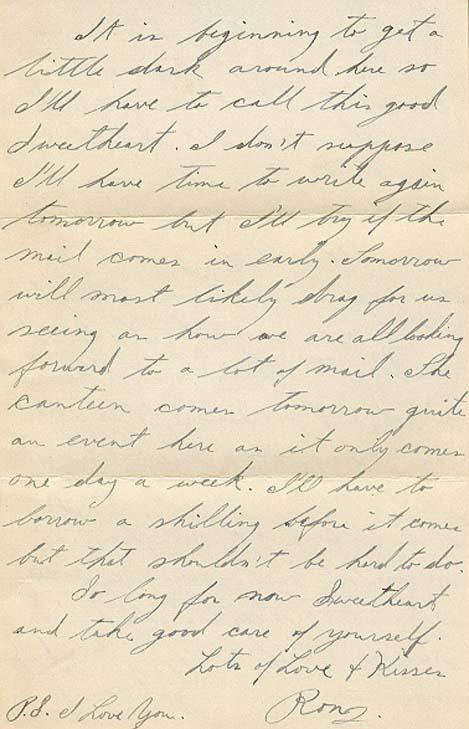 It is beginning to get a
little dark around here so
I'll have to call this good
Sweetheart. I don't suppose
I'll have time to write again
tomorrow but I'll try if the
mail comes in early. Tomorrow
will most likely drag for us
seeing as how we are all looking
forward to a lot of mail. The
canteen comes tomorrow quite
an event here as it only comes
one day a week. I'll have to
borrow a shilling before it comes
but that shouldn't be hard to do.
So long for now Sweetheart
and take good care of yourself.
Lots of Love & Kisses
P.S. I Love You.